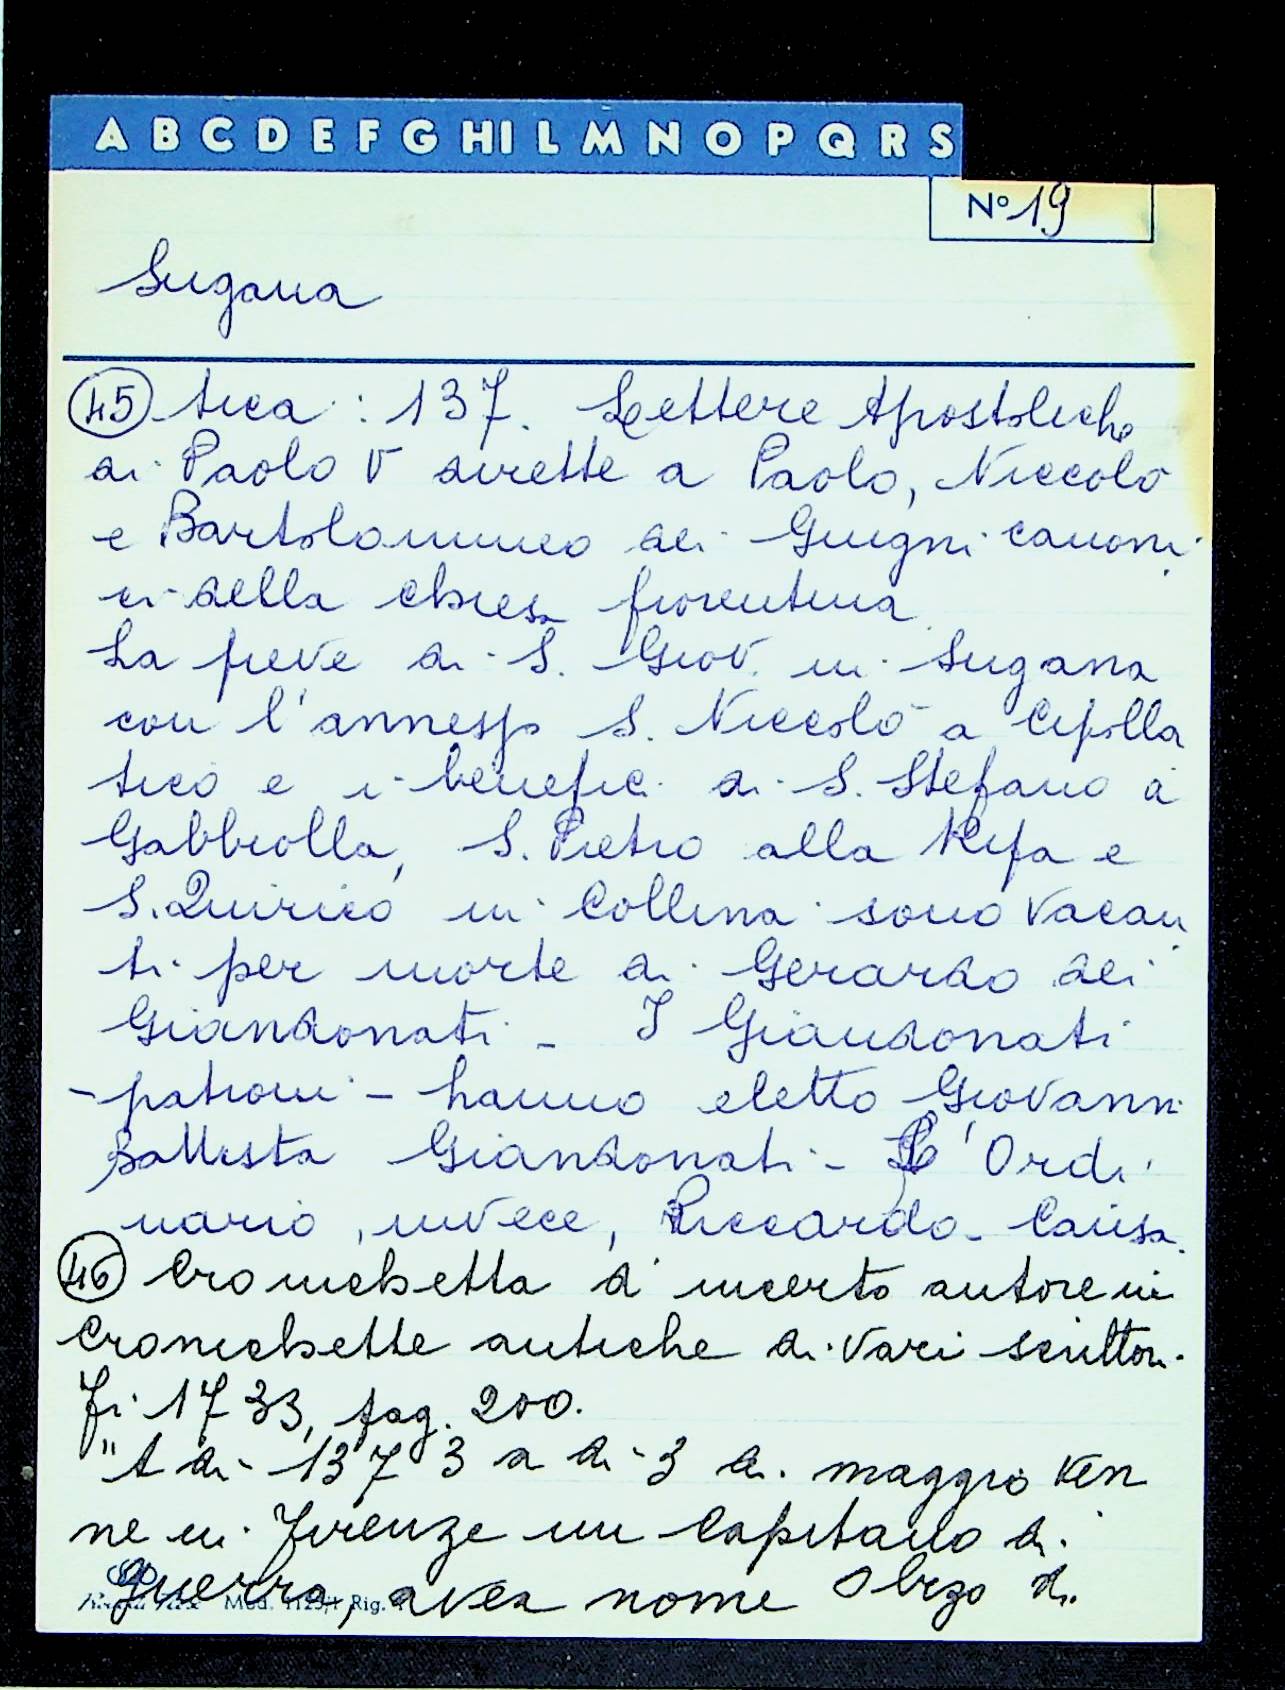 A B C D E F G H I L M N O P Q R S
N° 19
Sugana
(45) tica: 137. Lettere Apostoliche
di Paolo V dirette a Paolo, Niccolò
e Bartolommeo dei Giugni canoni
ci della chiesa fiorentina
La pieve di S. Giov. in Sugana
con l'annesso S. Niccolò a Cipolla
tico e i benefici di S. Stefano a
Gabbiolla, S. Pietro alla Ripa e
S. Quirico in Collina sono vacan
ti per morte di Gerardo dei
Giandonati - I Giandonati
- patroni - hanno eletto Giovanni
Battista Giandonati - L'Ordi
nario, invece, Riccardo - Causa.
(46) Cronichetta d'incerto autore in
Cronichette antiche di vari scrittori
Fi 1733, pag. 200.
"A di 1373 a di 3 di maggio ven
ne in Firenze un Capitano di
guerra, avea nome Obizo di
Mod. 1125/1 Rig.